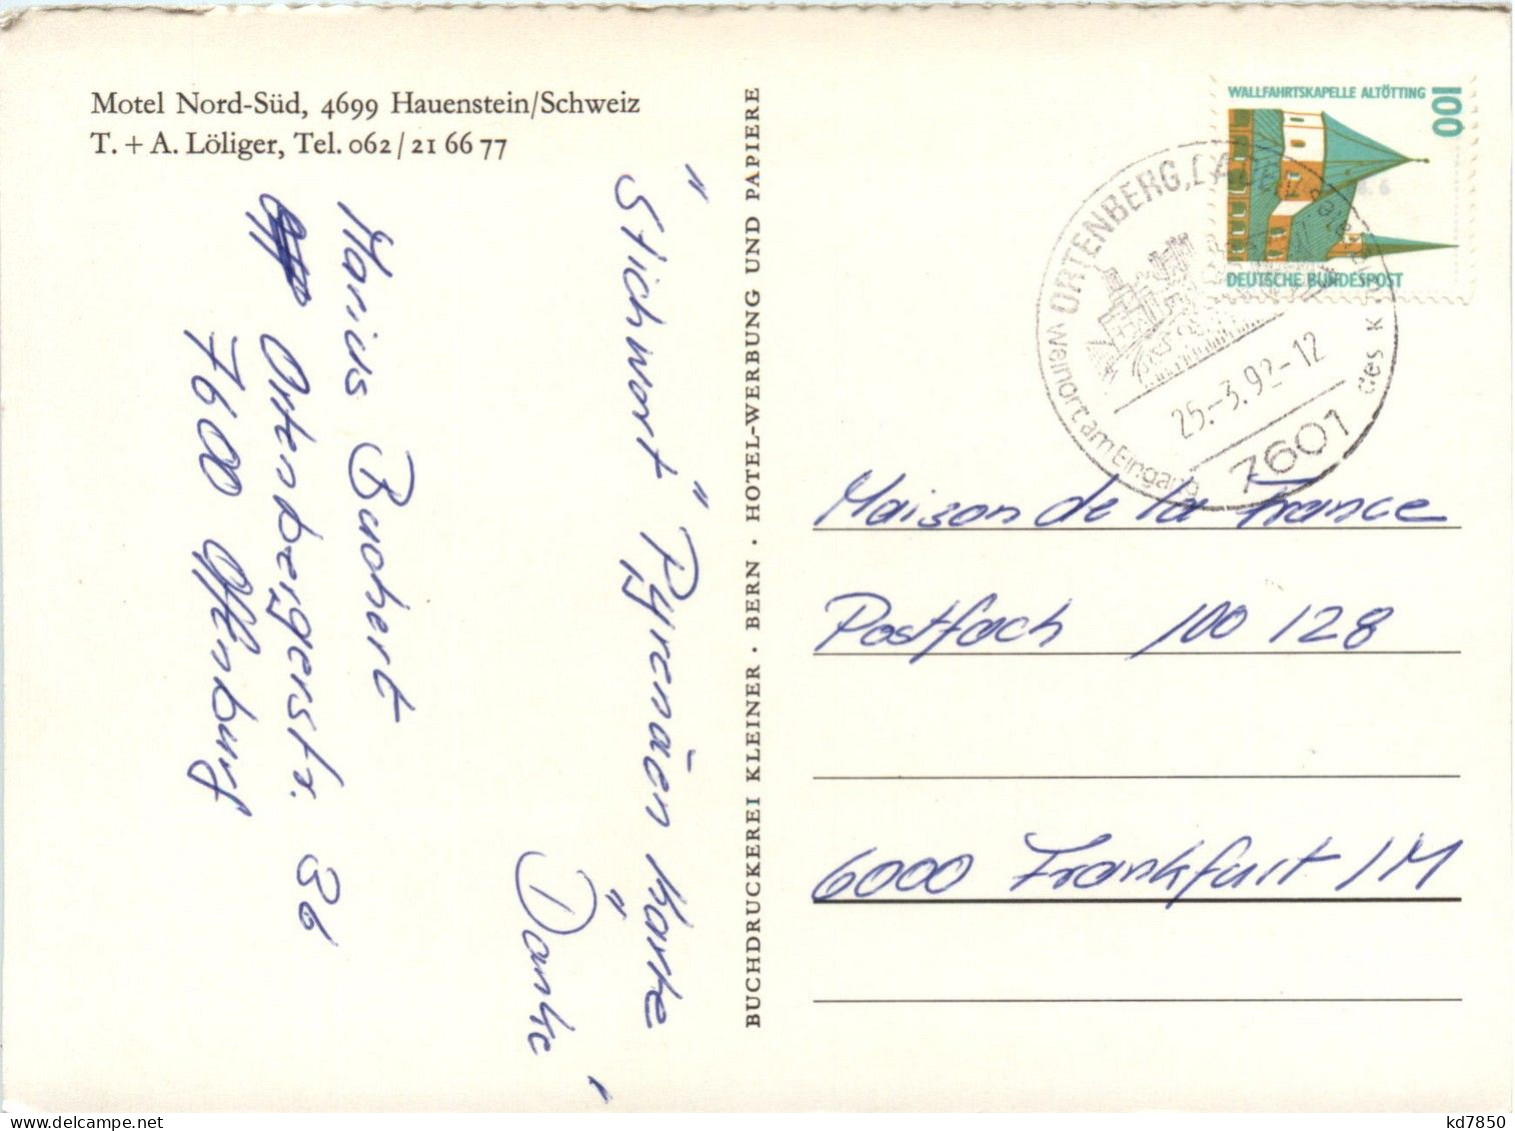 Motel Nord-Süd, 4699 Hauenstein/Schweiz
T. + A. Löliger, Tel. 062/21 66 77
Marius Buchert
Ortenbergerstr. 36
7600 Offenburg
"Stichwort "Pyrenäen Karte"
Danke
BUCHDRUCKEREI KLEINER · BERN · HOTEL-WERBUNG UND PAPIERE
WALLFAHRTSKAPELLE ALTÖTTING
100
DEUTSCHE BUNDESPOST
ORTENBERG,
Weinort am Eingang des
25.-3.92-12
7601
Maison de la France
Postfach 100 128
6000 Frankfurt /M
kd7850